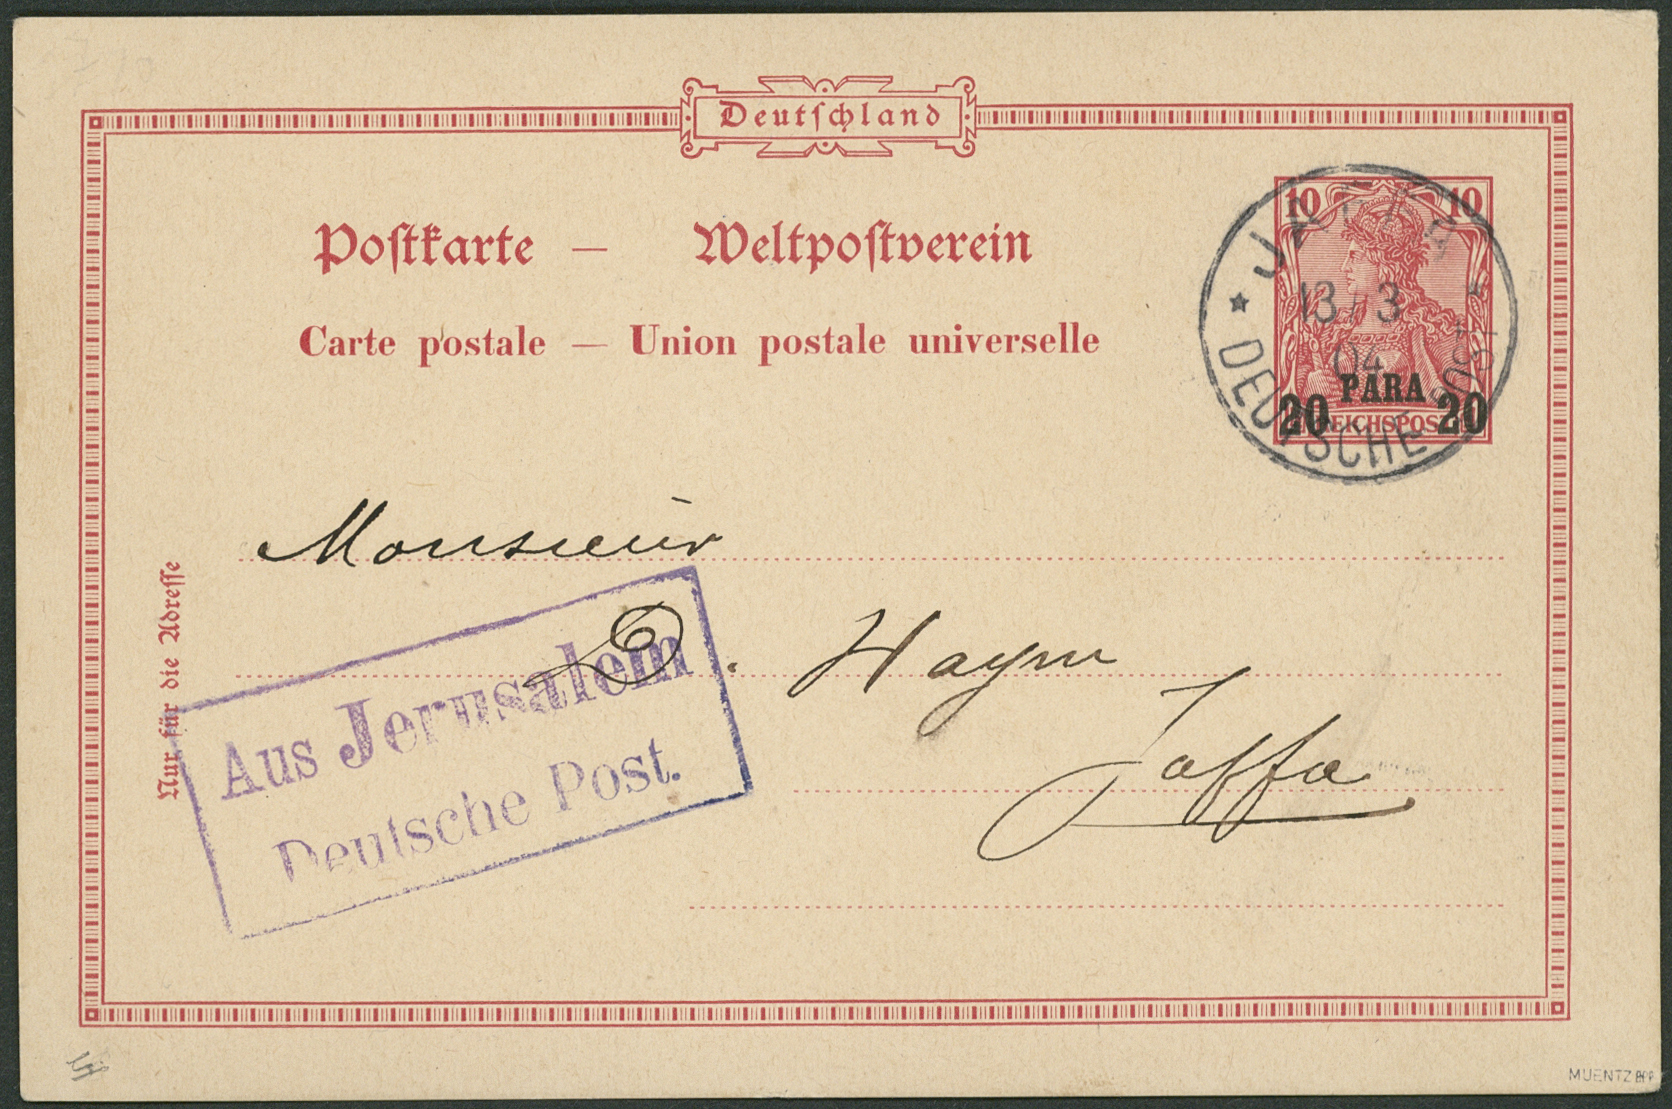 Deutſchland
Poſtkarte — Weltpoſtverein
Carte postale — Union postale universelle
10 10
PARA
20 20
REICHSPOST
JAFFA
13/3
04
* DEUTSCHE POST *
Monsieur
D. Haym
Jaffa
Nur für die Adreſſe
Aus Jerusalem
Deutsche Post.
MUENTZ BPP